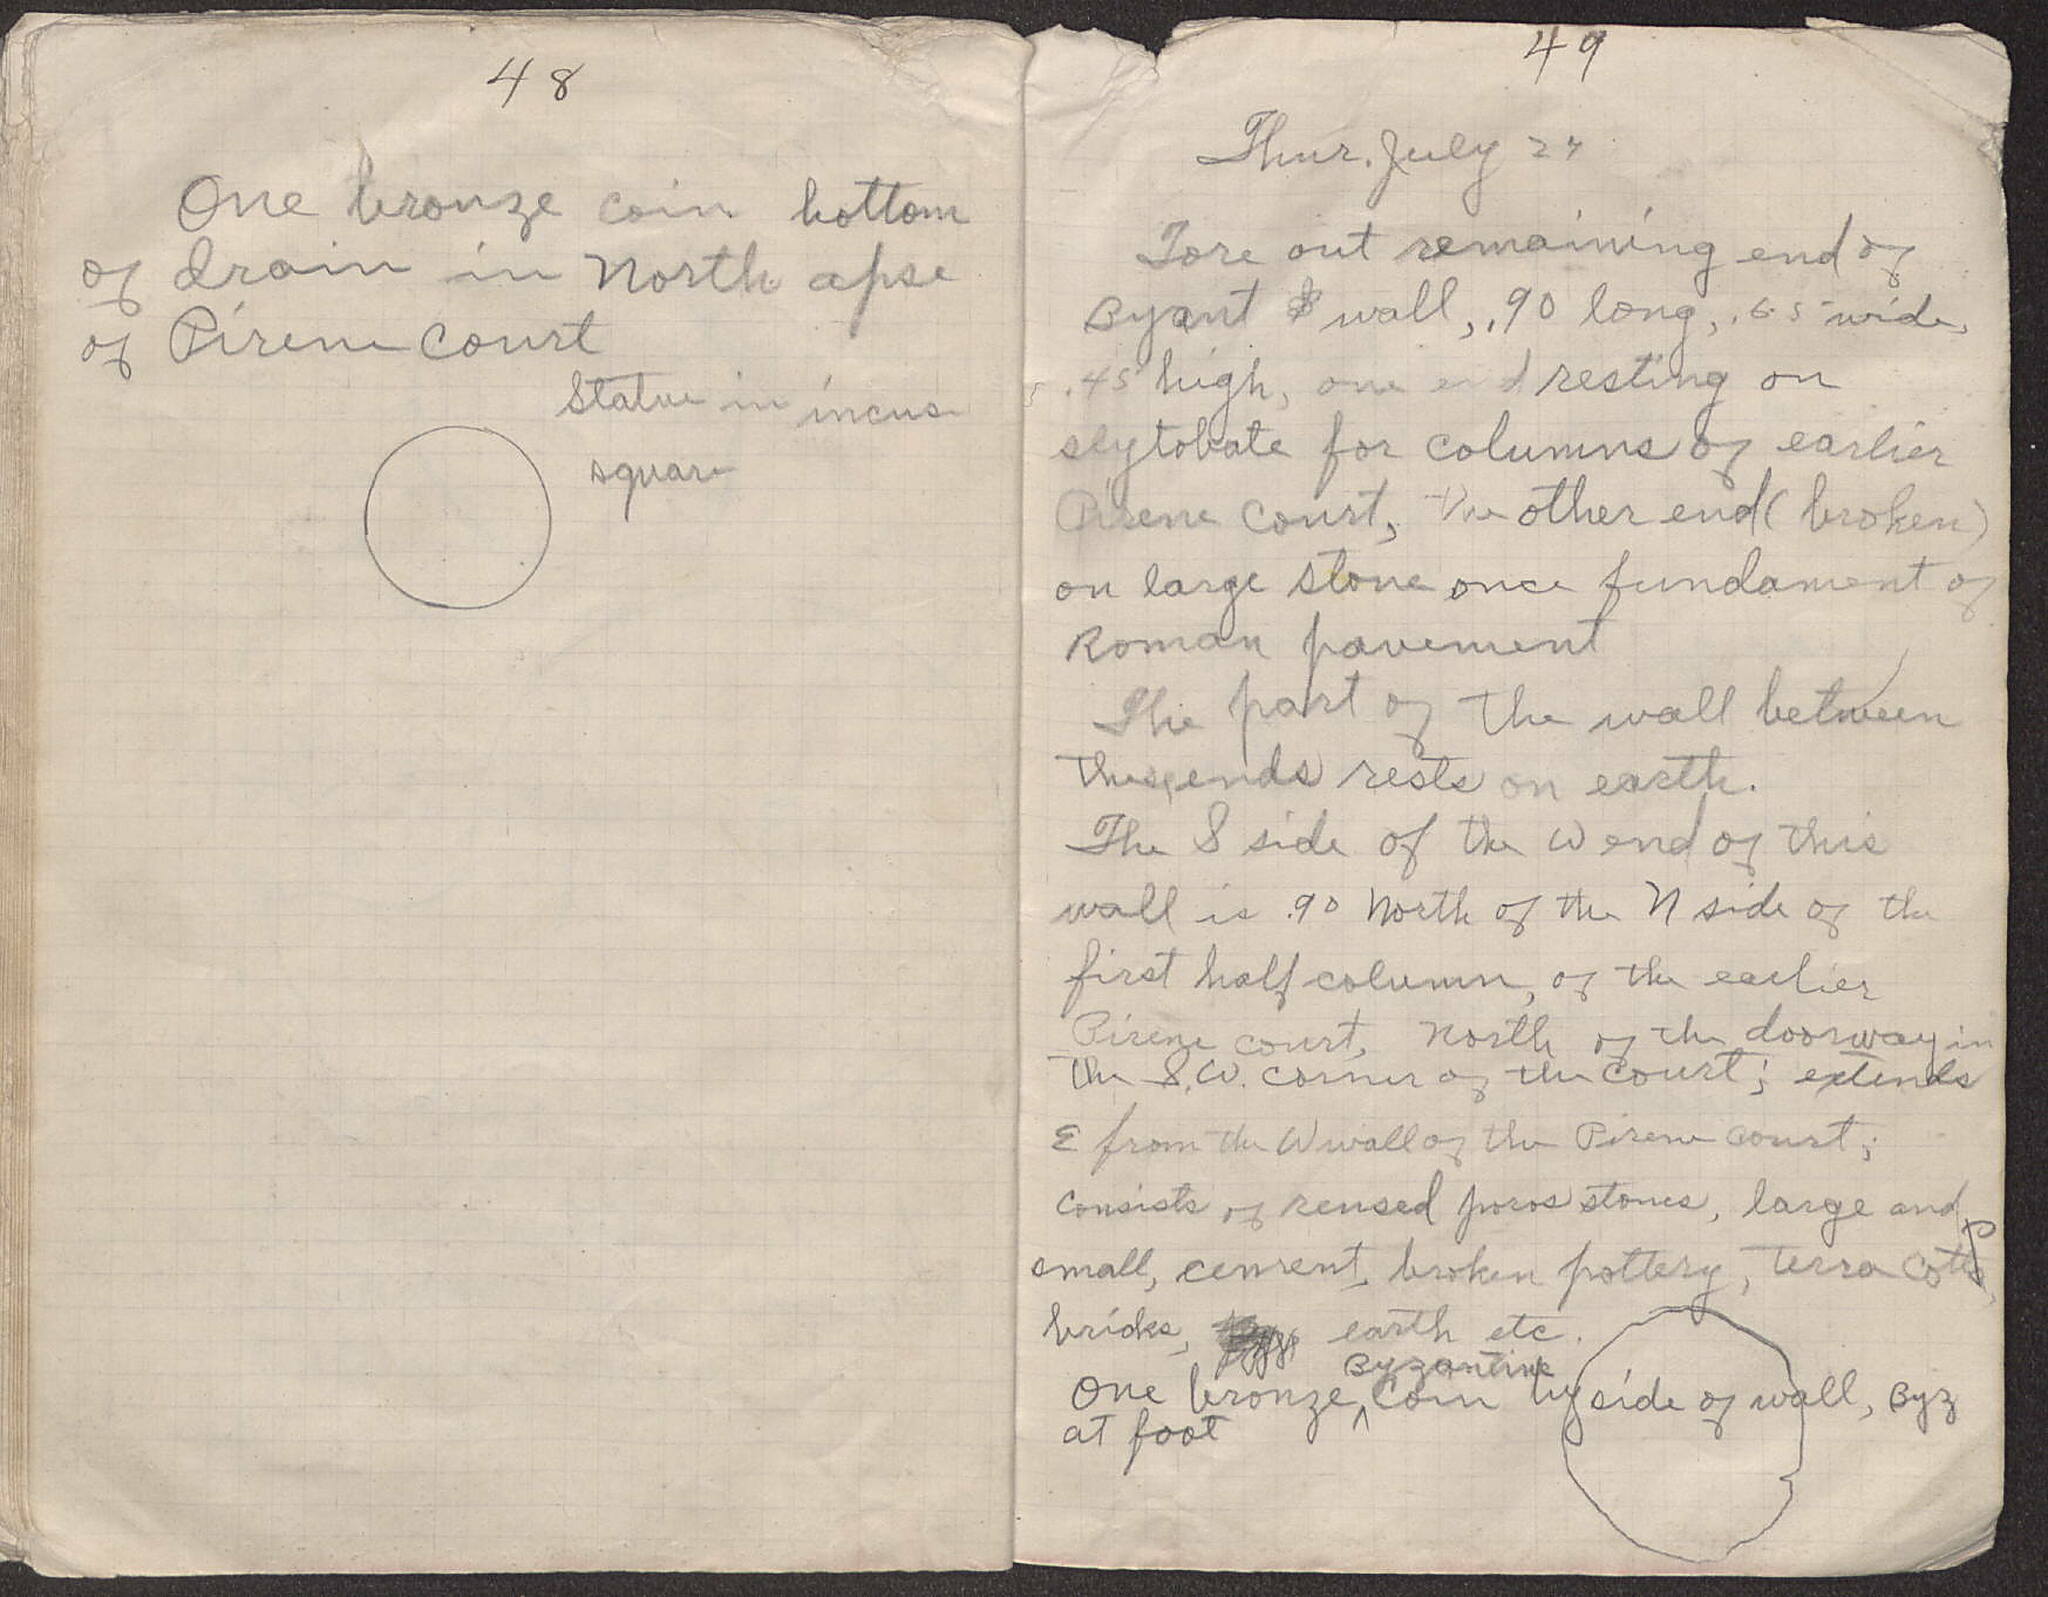 48
One bronze coin bottom
of drain in North apse
of Pirene Court
Statue in incuse
square
49
Thur. July 27
Tore out remaining end of
Byant wall, .90 long, .65 wide,
.45 high, one end resting on
slytobate for columns of earlier
Pirene Court, the other end (broken)
on large stone once fundament of
Roman pavement
The part of the wall between
these ends rests on earth.
The S side of the W end of this
wall is .90 North of the N side of the
first half column, of the earlier
Pirene court, North of the doorway in
the S.W. corner of the Court; extends
E from the W wall of the Pirene Court;
consists of reused poros stones, large and
small, cement, broken pottery, terra cotta
bricks, earth etc.
Byzantine
One bronze ^ Coin by side of wall, Byz
at foot